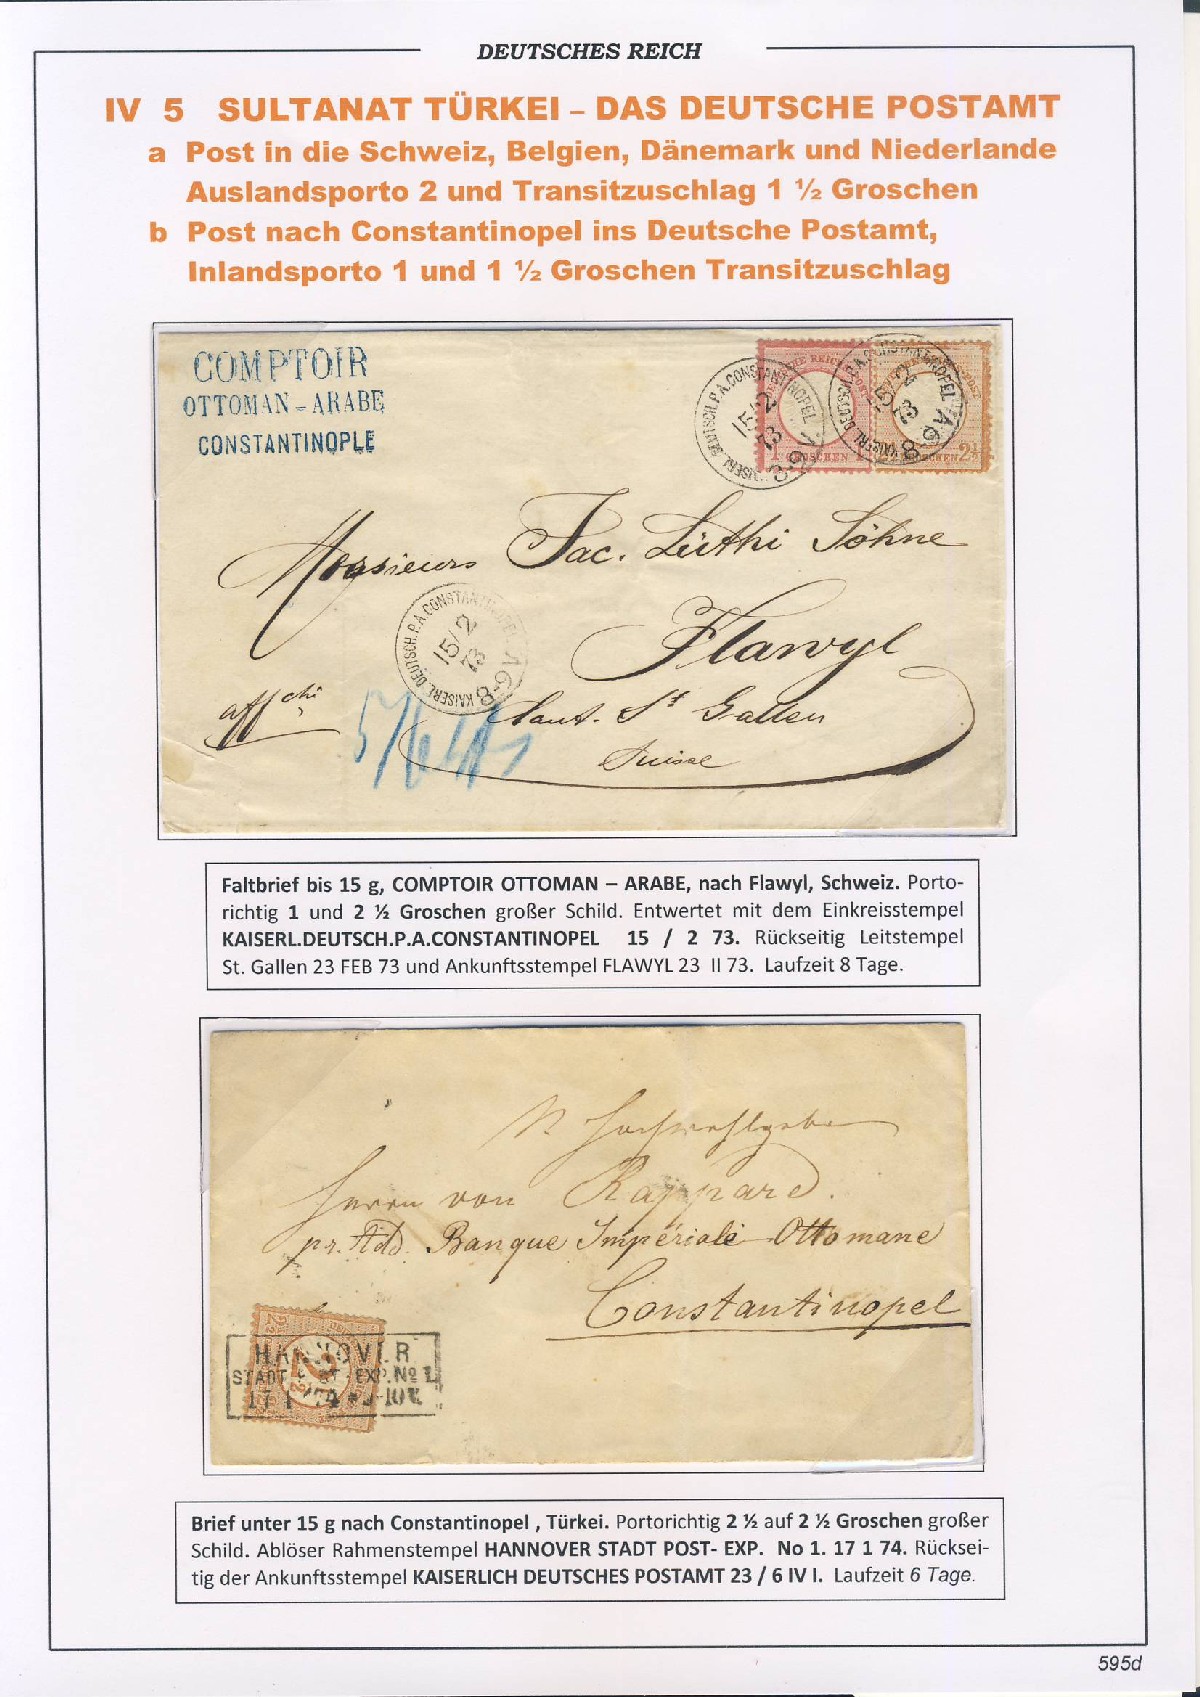 DEUTSCHES REICH
IV 5 SULTANAT TÜRKEI – DAS DEUTSCHE POSTAMT
a Post in die Schweiz, Belgien, Dänemark und Niederlande
Auslandsporto 2 und Transitzuschlag 1 ½ Groschen
b Post nach Constantinopel ins Deutsche Postamt,
Inlandsporto 1 und 1 ½ Groschen Transitzuschlag
COMPTOIR
OTTOMAN - ARABE
CONSTANTINOPLE
KAISERL. DEUTSCH. P. A. CONSTANTINOPEL
15/2
73
8-9 V
KAISERL. DEUTSCH. P. A. CONSTANTINOPEL
15/2
73
8-9 V
Messieurs Jac. Lüthi Söhne
Flawyl
KAISERL. DEUTSCH. P. A. CONSTANTINOPEL
15/2
73
8-9 V
Cant. St Gallen
Suisse
Faltbrief bis 15 g, COMPTOIR OTTOMAN – ARABE, nach Flawyl, Schweiz. Porto-
richtig 1 und 2 ½ Groschen großer Schild. Entwertet mit dem Einkreisstempel
KAISERL.DEUTSCH.P.A.CONSTANTINOPEL 15 / 2 73. Rückseitig Leitstempel
St. Gallen 23 FEB 73 und Ankunftsstempel FLAWYL 23 II 73. Laufzeit 8 Tage.
Hochwohlgeboren
Herrn von Rappard.
pr. Add. Banque Impériale Ottomane
Constantinopel
HANNOVER
STADT POST-EXP. No 1.
17 1 74
Brief unter 15 g nach Constantinopel , Türkei. Portorichtig 2 ½ auf 2 ½ Groschen großer
Schild. Ablöser Rahmenstempel HANNOVER STADT POST- EXP. No 1. 17 1 74. Rücksei-
tig der Ankunftsstempel KAISERLICH DEUTSCHES POSTAMT 23 / 6 IV I. Laufzeit 6 Tage.
595d